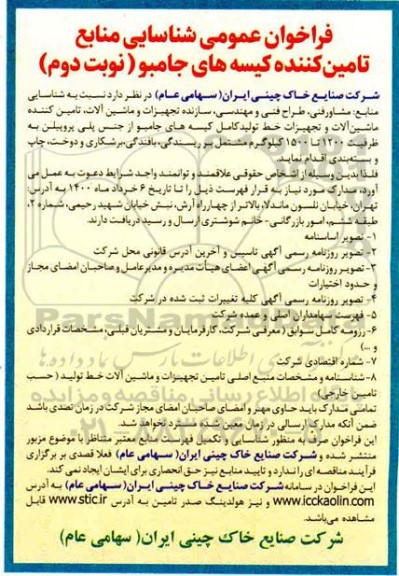 فراخوان عمومی شناسایی منابع
تامین‌کننده کیسه های جامبو ( نوبت دوم)
شرکت صنایع خاک چینی ایران( سهامی عام) در نظر دارد نسبت به شناسایی
منابع: مشاور فنی، طراح فنی و مهندسی، سازنده تجهیزات و ماشین آلات، تامین کننده
ماشین‌آلات و تجهیزات خط تولید کامل کیسه های جامبو از جنس پلی پروپیلن به
ظرفیت ۱۲۰۰ تا ۱۵۰۰ کیلوگرم مشتمل بر ریسندگی، بافندگی، برشکاری و دوخت، چاپ
و بسته‌بندی اقدام نماید.
فلذا بدین وسیله از اشخاص حقوقی علاقمند و توانمند واجد شرایط دعوت به عمل می
آورد، مدارک مورد نیاز به قرار فهرست ذیل را تا تاریخ ۶ خرداد ماه ۱۴۰۰ به آدرس:
تهران، خیابان نلسون ماندلا، بالاتر از چهارراه آرش، نبش خیابان شهید رحیمی، شماره ۲،
طبقه ششم، امور بازرگانی- خانم شوشتری ارسال و رسید دریافت دارند.
۱- تصویر اساسنامه
۲- تصویر روزنامه رسمی آگهی تاسیس و آخرین آدرس قانونی محل شرکت
۳- تصویر روزنامه رسمی آگهی اعضای هیأت مدیره و مدیرعامل و صاحبان امضای مجاز
و حدود اختیارات
۴- تصویر روزنامه رسمی آگهی کلیه تغییرات ثبت شده در شرکت
۵- فهرست سهامداران اصلی و عمده شرکت
۶- رزومه کامل سوابق ( معرفی شرکت، کارفرمایان و مشتریان قبلی، مشخصات قراردادی
و ...)
۷- شماره اقتصادی شرکت
۸- شناسنامه و مشخصات منبع اصلی تامین تجهیزات و ماشین آلات خط تولید ( حسب
تامین خارجی)
تمامی مدارک باید حاوی مهر و امضای صاحبان امضای مجاز شرکت در زمان تصدی باشد
ضمن آنکه مدارک ارسالی در زمان معین شده مسترد نخواهد شد.
این فراخوان صرفا به منظور شناسایی و تکمیل فهرست منابع معتبر متناظر با موضوع مزبور
منتشر شده و شرکت صنایع خاک چینی ایران( سهامی عام) فعلا قصدی بر برگزاری
فرآیند مناقصه ای را ندارد و تایید منابع نیز حق انحصاری برای ایشان ایجاد نمی کند.
این فراخوان در سامانه شرکت صنایع خاک چینی ایران( سهامی عام) به آدرس
www.icckaolin.com و نیز هولدینگ صدر تامین به آدرس www.stic.ir قابل
مشاهده می‌باشد.
شرکت صنایع خاک چینی ایران( سهامی عام)